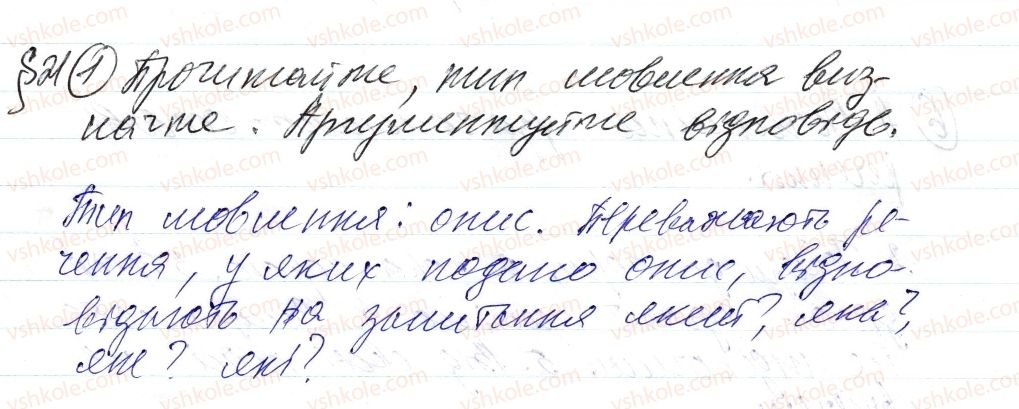 §21 ① Прочитайте, тип мовлення виз-
начте. Аргументуйте відповідь.
Тип мовлення: опис. Переважають ре-
чення, у яких подано опис, відпо-
відають на запитання який?, яка?,
яке? які?